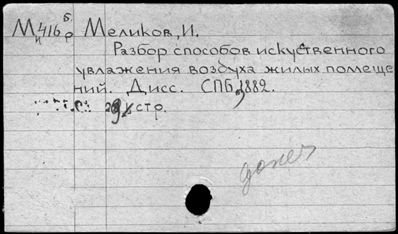 Меликов, И.
Разбор способов искуственного
увлажения воздуха жилых помеще
ний. Дисс. СПБ, 1882.
стр.